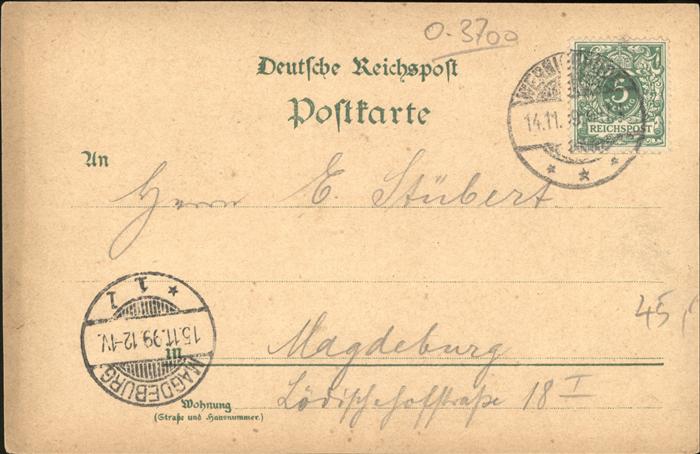 0-3700
Deutsche Reichspost
Postkarte
5
REICHSPOST
14.11.
An
Herrn E. Stübert
1 1
15.11.99.12-1V.
MAGDEBURG
45,
in Magdeburg
Wohnung
(Straße und Hausnummer.)
Lödischehofstraße 18 I